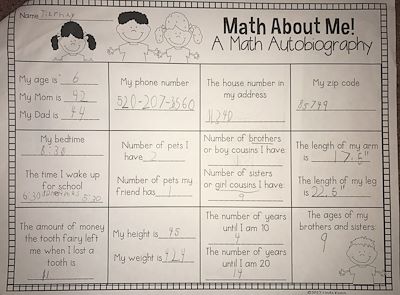 Name Tiernay
Math About Me!
A Math Autobiography
My age is 6
My Mom is 42
My Dad is 44
My phone number
520-207-8560
The house number in
my address
11240
My zip code
85749
My bedtime
8:30
The time I wake up
for school
6:30 5:20
Number of pets I
have 2
Number of pets my
friend has 1
Number of brothers
or boy cousins I have
Number of sisters
or girl cousins I have
9
The length of my arm
is 17.5"
The length of my leg
is 22.5"
The amount of money
the tooth fairy left
me when I lost a
tooth is
My height is 45
My weight is 42.9
The number of years
until I am 10
4
The number of years
until I am 20
14
The ages of my
brothers and sisters
9